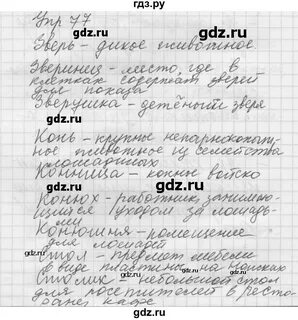 гдз.ру
Упр 77
gdz.ru
Зверь – дикое животное.
Зверинец – место, где в
клетках содержат зверей
для показа
Зверушка – детёныш зверя
Конь – крупное непарнокопыт-
ное животное из семейства
лошадиных
Конница – конное войско
Конюх – работник занимаю-
щийся уходом за лошадь-
ми
Конюшня – помещение
для лошадей
Стол – предмет мебели
в виде пластины на ножках
Столик – небольшой стол
для посетителей в ресто-
ране, кафе